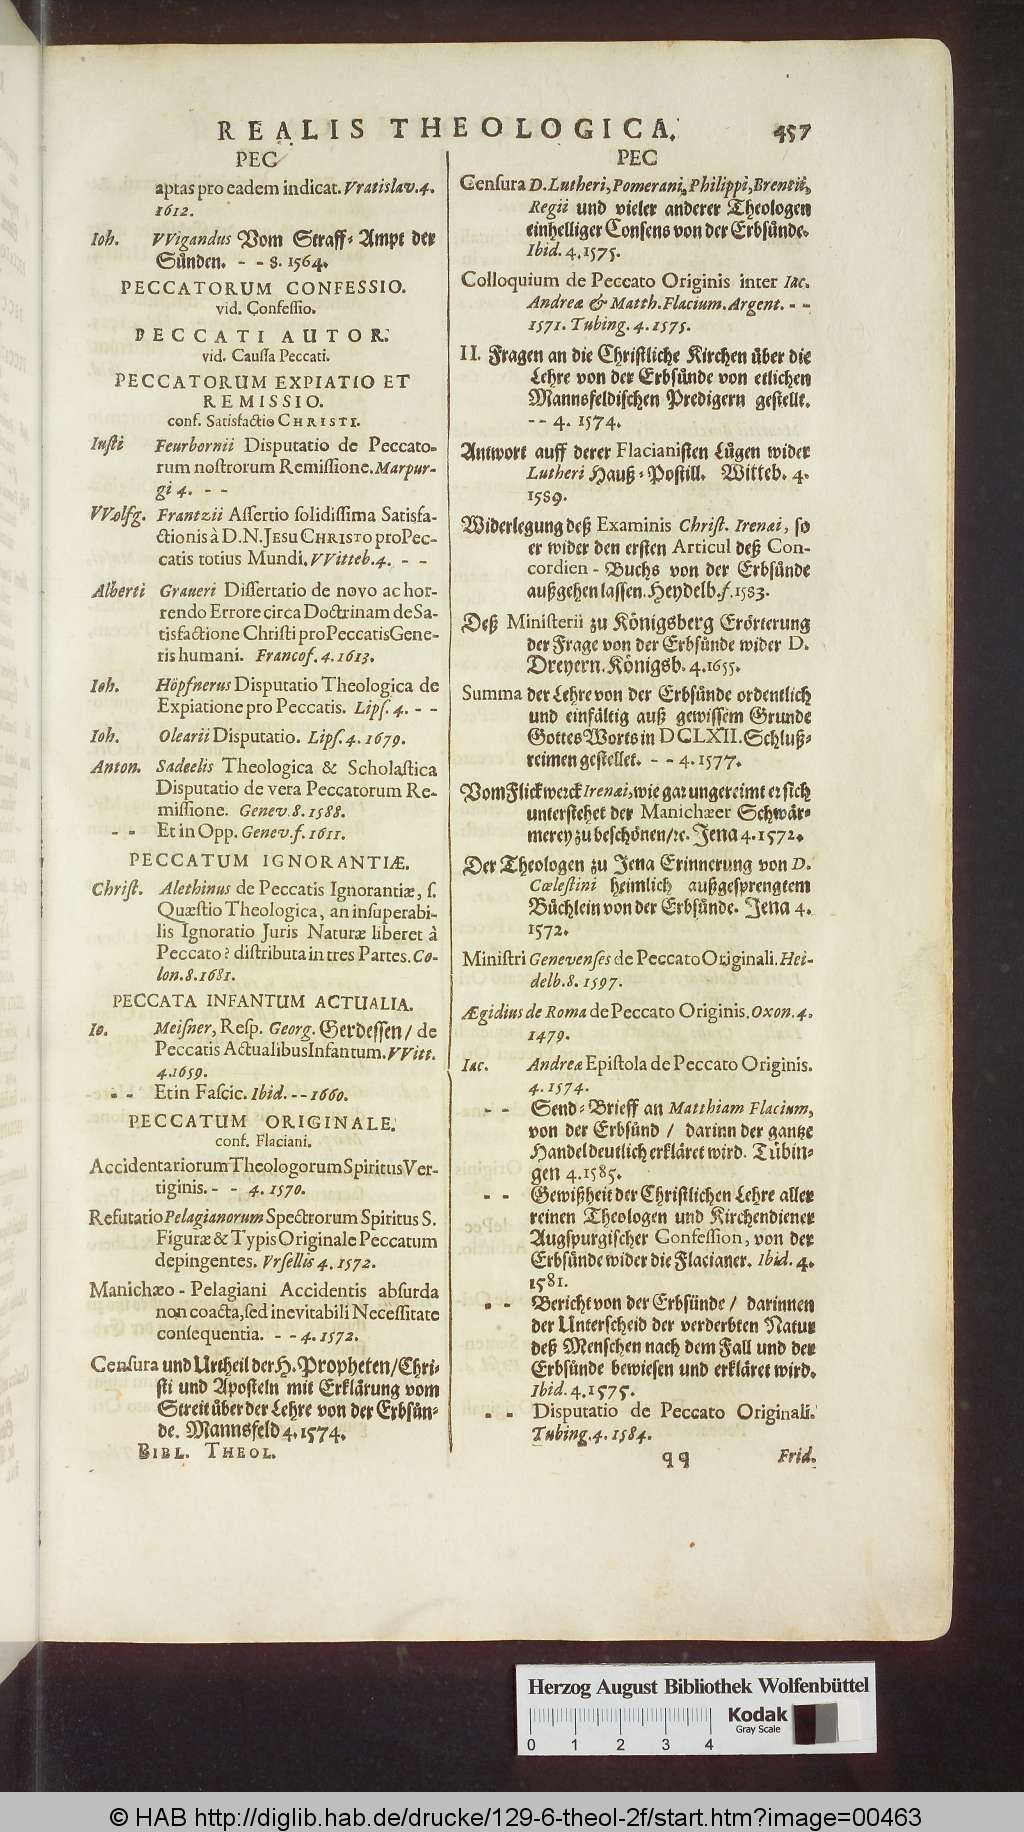 REALIS THEOLOGICA. 457
PEC
aptas pro eadem indicat. Vratislav. 4.
1612.
Ioh. VVigandus Vom Straff-Ampt der
Sünden. - - 8. 1564.
PECCATORUM CONFESSIO.
vid. Confessio.
PECCATI AUTOR.
vid. Caussa Peccati.
PECCATORUM EXPIATIO ET
REMISSIO.
conf. Satisfactio CHRISTI.
Iusti Feurbornii Disputatio de Peccato-
rum nostrorum Remissione. Marpur-
gi 4. - -
VVolfg. Frantzii Assertio solidissima Satisfa-
ctionis à D. N. JESU CHRISTO pro Pec-
catis totius Mundi. VVitteb. 4. - -
Alberti Graueri Dissertatio de novo ac hor-
rendo Errore circa Doctrinam de Sa-
tisfactione Christi pro Peccatis Gene-
ris humani. Francof. 4. 1613.
Ioh. Höpfnerus Disputatio Theologica de
Expiatione pro Peccatis. Lips. 4. - -
Ioh. Olearii Disputatio. Lips. 4. 1679.
Anton. Sadeelis Theologica & Scholastica
Disputatio de vera Peccatorum Re-
missione. Genev. 8. 1588.
- - Et in Opp. Genev. f. 1611.
PECCATUM IGNORANTIÆ.
Christ. Alethinus de Peccatis Ignorantiæ, s.
Quæstio Theologica, an insuperabi-
lis Ignoratio Juris Naturæ liberet à
Peccato? distributa in tres Partes. Co-
lon. 8. 1681.
PECCATA INFANTUM ACTUALIA.
Io. Meisner, Resp. Georg. Gerdessen / de
Peccatis Actualibus Infantum. VVitt.
4. 1659.
- - Et in Fascic. Ibid. - - 1660.
PECCATUM ORIGINALE.
conf. Flaciani.
Accidentariorum Theologorum Spiritus Ver-
tiginis. - - 4. 1570.
Refutatio Pelagianorum Spectrorum Spiritus S.
Figuræ & Typis Originale Peccatum
depingentes. Vrsellis 4. 1572.
Manichæo-Pelagiani Accidentis absurda
non coacta, sed inevitabili Necessitate
consequentia. - - 4. 1572.
Censura und Urtheil der H. Propheten / Chri-
sti und Aposteln mit Erklärung vom
Streit über der Lehre von der Erbsün-
de. Mannsfeld 4. 1574.
BIBL. THEOL.
PEC
Censura D. Lutheri, Pomerani, Philippi, Brentii,
Regii und vieler anderer Theologen
einhelliger Consens von der Erbsünde.
Ibid. 4. 1575.
Colloquium de Peccato Originis inter Iac.
Andreæ & Matth. Flacium. Argent. - -
1571. Tubing. 4. 1575.
II. Fragen an die Christliche Kirchen über die
Lehre von der Erbsünde von etlichen
Mannsfeldischen Predigern gestellt.
- - 4. 1574.
Antwort auff derer Flacianisten Lügen wider
Lutheri Hauß-Postill. Witteb. 4.
1589.
Widerlegung deß Examinis Christ. Irenæi, so
er wider den ersten Articul deß Con-
cordien-Buchs von der Erbsünde
außgehen lassen. Heydelb. f. 1583.
Deß Ministerii zu Königsberg Erörterung
der Frage von der Erbsünde wider D.
Dreyern. Königsb. 4. 1655.
Summa der Lehre von der Erbsünde ordentlich
und einfältig auß gewissem Grunde
Gottes Worts in DCLXII. Schluß-
reimen gestellet. - - 4. 1577.
Vom Flickwerck Irenæi, wie gar ungereimt er sich
unterstehet der Manichæer Schwär-
merey zu beschönen / ꝛc. Jena 4. 1572.
Der Theologen zu Jena Erinnerung von D.
Cœlestini heimlich außgesprengtem
Büchlein von der Erbsünde. Jena 4.
1572.
Ministri Genevenses de Peccato Originali. Hei-
delb. 8. 1597.
Ægidius de Roma de Peccato Originis. Oxon. 4.
1479.
Iac. Andreæ Epistola de Peccato Originis.
4. 1574.
- - Send-Brieff an Matthiam Flacium,
von der Erbsünd / darinn der gantze
Handel deutlich erkläret wird. Tübin-
gen 4. 1585.
- - Gewißheit der Christlichen Lehre aller
reinen Theologen und Kirchendiener
Augspurgischer Confession, von der
Erbsünde wider die Flacianer. Ibid. 4.
1581.
- - Bericht von der Erbsünde / darinnen
der Unterscheid der verderbten Natur
deß Menschen nach dem Fall und der
Erbsünde bewiesen und erkläret wird.
Ibid. 4. 1575.
- - Disputatio de Peccato Originali.
Tubing. 4. 1584.
qq Frid.
Herzog August Bibliothek Wolfenbüttel
Kodak
Gray Scale
0 1 2 3 4
© HAB http://diglib.hab.de/drucke/129-6-theol-2f/start.htm?image=00463